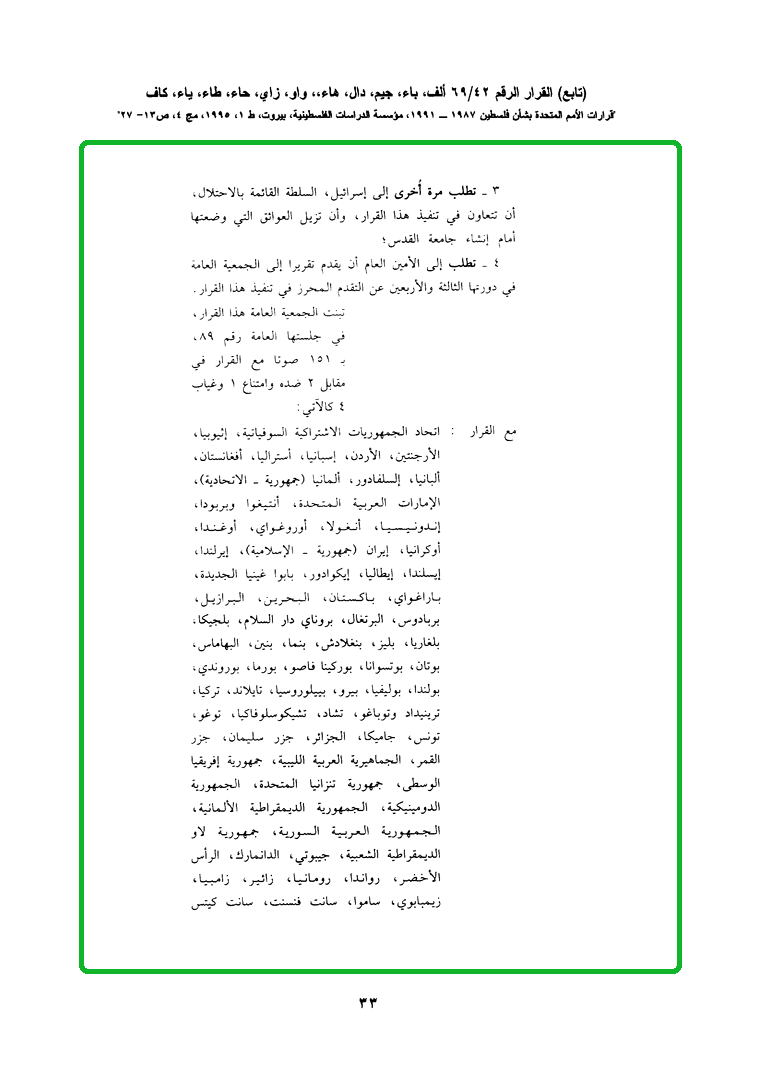 (تابع) القرار الرقم ٦٩/٤٢ ألف، باء، جيم، دال، هاء،، واو، زاي، حاء، طاء، ياء، كاف
"قرارات الأمم المتحدة بشأن فلسطين ١٩٨٧ ــ ١٩٩١، مؤسسة الدراسات الفلسطينية، بيروت، ط ١، ١٩٩٥، مج ٤، ص١٣- ٢٧"
٣ ـ تطلب مرة أُخرى إلى إسرائيل، السلطة القائمة بالاحتلال،
أن تتعاون في تنفيذ هذا القرار، وأن تزيل العوائق التي وضعتها
أمام إنشاء جامعة القدس؛
٤ ـ تطلب إلى الأمين العام أن يقدم تقريرا إلى الجمعية العامة
في دورتها الثالثة والأربعين عن التقدم المحرز في تنفيذ هذا القرار.
تبنت الجمعية العامة هذا القرار،
في جلستها العامة رقم ٨٩،
بـ ١٥١ صوتا مع القرار في
مقابل ٢ ضده وامتناع ١ وغياب
٤ كالآتي:
مع القرار : اتحاد الجمهوريات الاشتراكية السوفياتية، إثيوبيا،
الأرجنتين، الأردن، إسبانيا، أستراليا، أفغانستان،
ألبانيا، السلفادور، ألمانيا (جمهورية ـ الاتحادية)،
الإمارات العربية المتحدة، أنتيغوا وبربودا،
إندونيسيا، أنغولا، أوروغواي، أوغندا،
أوكرانيا، إيران (جمهورية ـ الإسلامية)، إيرلندا،
إيسلندا، إيطاليا، إيكوادور، بابوا غينيا الجديدة،
باراغواي، باكستان، البحرين، البرازيل،
بربادوس، البرتغال، بروناي دار السلام، بلجيكا،
بلغاريا، بليز، بنغلادش، بنما، بنين، البهاماس،
بوتان، بوتسوانا، بوركينا فاصو، بورما، بوروندي،
بولندا، بوليفيا، بيرو، بييلوروسيا، تايلاند، تركيا،
ترينيداد وتوباغو، تشاد، تشيكوسلوفاكيا، توغو،
تونس، جاميكا، الجزائر، جزر سليمان، جزر
القمر، الجماهيرية العربية الليبية، جمهورية إفريقيا
الوسطى، جمهورية تنزانيا المتحدة، الجمهورية
الدومينيكية، الجمهورية الديمقراطية الألمانية،
الجمهورية العربية السورية، جمهورية لاو
الديمقراطية الشعبية، جيبوتي، الدانمارك، الرأس
الأخضر، رواندا، رومانيا، زائير، زامبيا،
زيمبابوي، ساموا، سانت فنسنت، سانت كيتس
٣٣